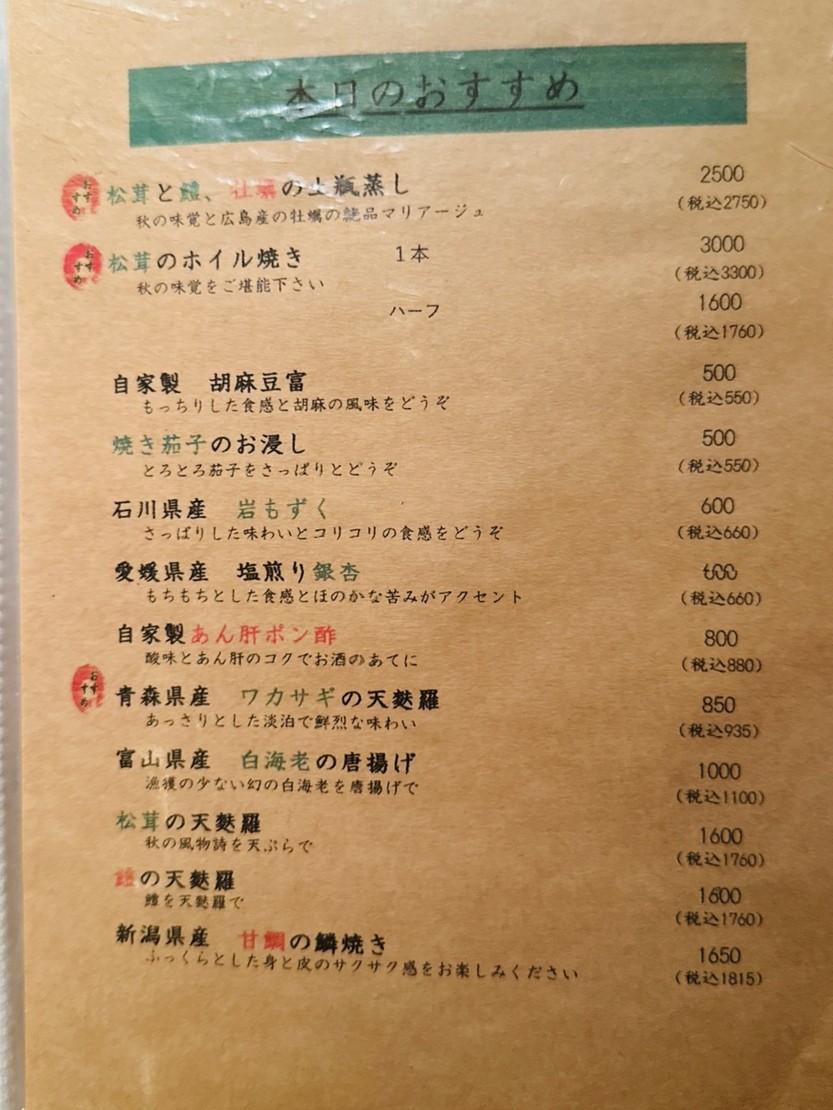 本日のおすすめ
おすすめ
松茸と鱧、牡蠣の土瓶蒸し 2500
秋の味覚と広島産の牡蠣の絶品マリアージュ (税込2750)
おすすめ
松茸のホイル焼き 1本 3000
秋の味覚をご堪能下さい (税込3300)
ハーフ 1600
(税込1760)
自家製 胡麻豆富 500
もっちりした食感と胡麻の風味をどうぞ (税込550)
焼き茄子のお浸し 500
とろとろ茄子をさっぱりとどうぞ (税込550)
石川県産 岩もずく 600
さっぱりした味わいとコリコリの食感をどうぞ (税込660)
愛媛県産 塩煎り銀杏 600
もちもちとした食感とほのかな苦みがアクセント (税込660)
自家製あん肝ポン酢 800
酸味とあん肝のコクでお酒のあてに (税込880)
おすすめ
青森県産 ワカサギの天麩羅 850
あっさりとした淡泊で鮮烈な味わい (税込935)
富山県産 白海老の唐揚げ 1000
漁獲の少ない幻の白海老を唐揚げで (税込1100)
松茸の天麩羅 1600
秋の風物詩を天ぷらで (税込1760)
鱧の天麩羅 1600
鱧を天麩羅で (税込1760)
新潟県産 甘鯛の鱗焼き 1650
ふっくらとした身と皮のサクサク感をお楽しみください (税込1815)